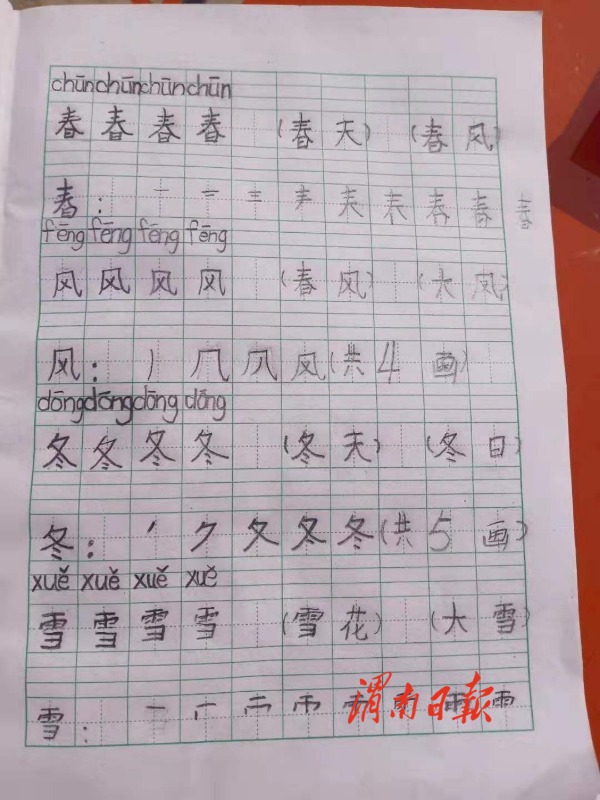 chūn chūn chūn chūn
春 春 春 春 (春 天) (春 风)
春: 一 二 三 𡗗 春 春 春
fēng fēng fēng fēng
风 风 风 风 (春 风) (大 风)
风: 丿 几 风 (共 4 画)
dōng dōng dōng dōng
冬 冬 冬 冬 (冬 天) (冬 日)
冬: ノ ク 夂 冬 冬 (共 5 画)
xuě xuě xuě xuě
雪 雪 雪 雪 (雪 花) (大 雪)
雪: 一
渭南日报